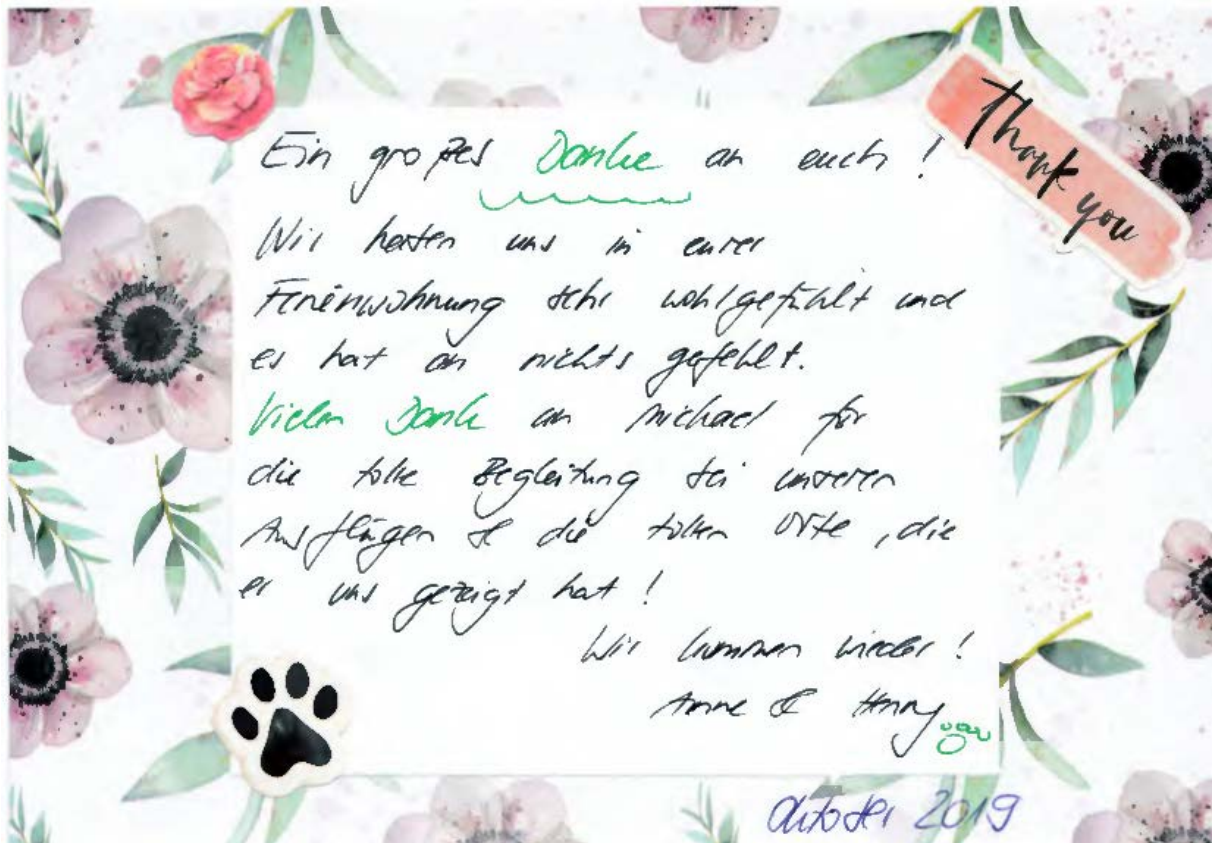 Ein großes Danke an euch !
Thank you
Wir haben uns in eurer
Ferienwohnung sehr wohlgefühlt und
es hat an nichts gefehlt.
Vielen Dank an Michael für
die tolle Begleitung bei unseren
Ausflügen & die tollen Orte, die
er uns gezeigt hat !
Wir kommen wieder !
Anne & Henry
Oktober 2019